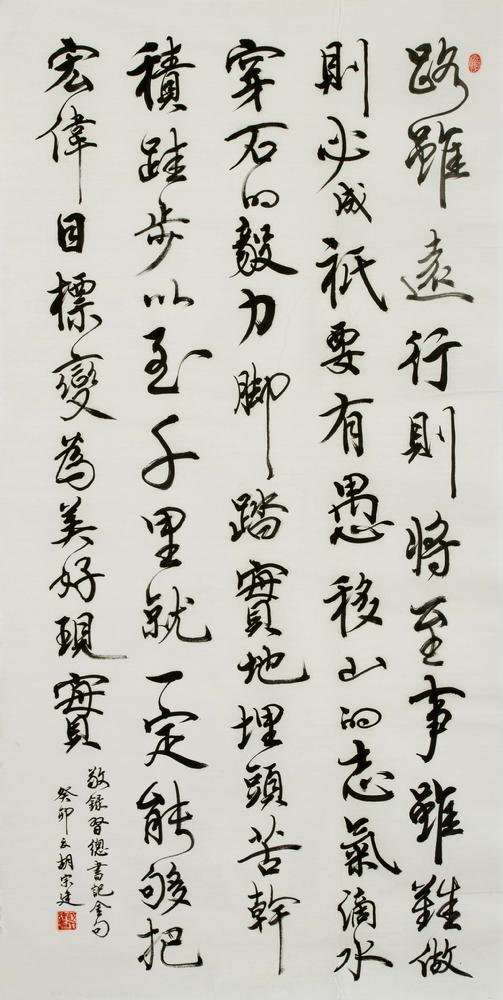 路雖遠行則將至事雖難做
則必成祇要有愚移山的志氣滴水
穿石的毅力脚踏實地埋頭苦幹
積跬步以至千里就一定能够把
宏偉目標變為美好現實
敬録習總書記金句
癸卯玄胡宗建